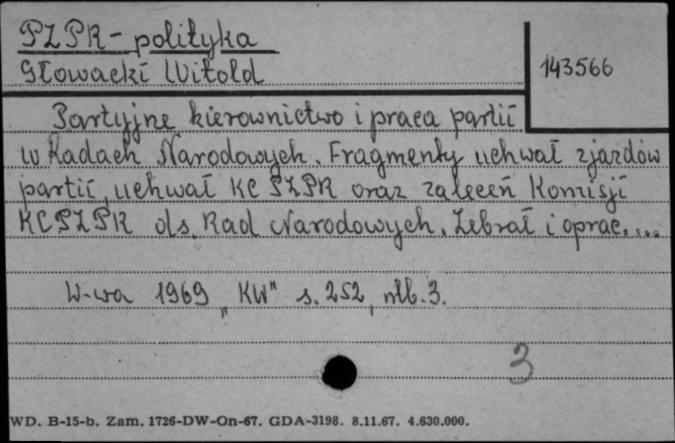 PZPR - polityka
Słowacki Witold
143566
Partyjne kierownictwo i praca partii
w Radach Narodowych. Fragmenty uchwał zjazdów
partii, uchwał KC PZPR oraz zaleceń Komisji
KC PZPR ds. Rad Narodowych. Zebrał i oprac. ...
W-wa 1969 „KW" s. 252, nlb. 3.
3
WD. B-15-b. Zam. 1726-DW-On-67. GDA-3198. 8.11.67. 4.630.000.